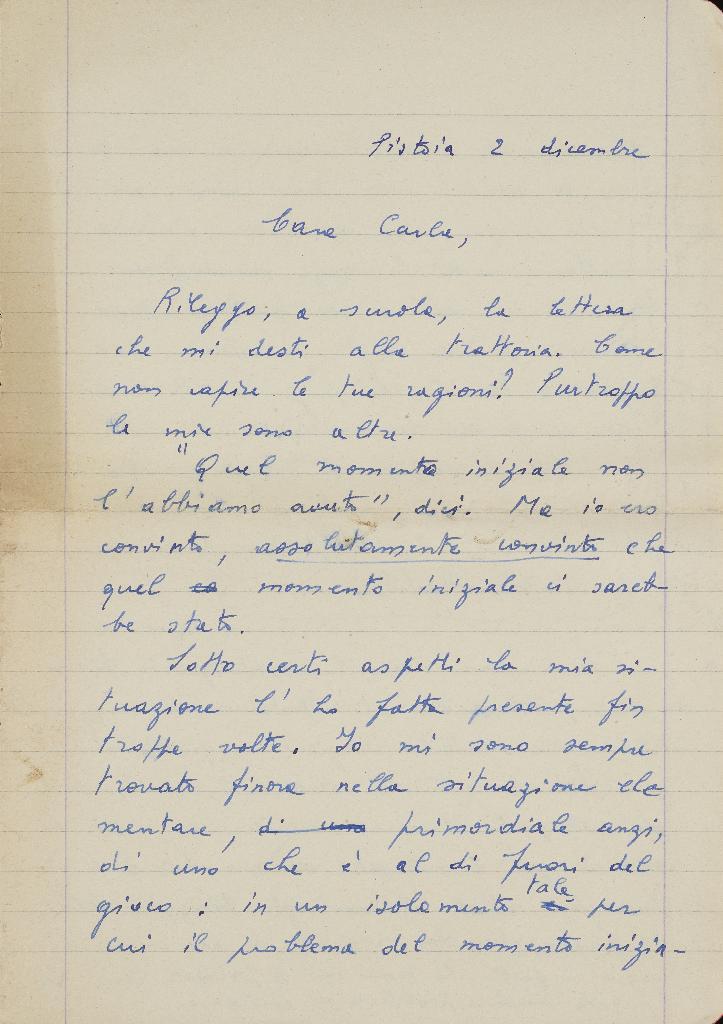 Pistoia 2 dicembre
Cara Carla,
Rileggo, a scuola, la lettera
che mi desti alla trattoria. Come
non capire le tue ragioni? Purtroppo
le mie sono altre.
"Quel momento iniziale non
l'abbiamo avuto", dici. Ma io ero
convinto, assolutamente convinto che
quel momento iniziale ci sareb-
be stato.
Sotto certi aspetti la mia si-
tuazione l'ho fatta presente fin
troppe volte. Io mi sono sempre
trovato finora nella situazione ele
mentare, di uno primordiale anzi,
di uno che è al di fuori del
gioco: in un isolamento tale per
cui il problema del momento inizia-